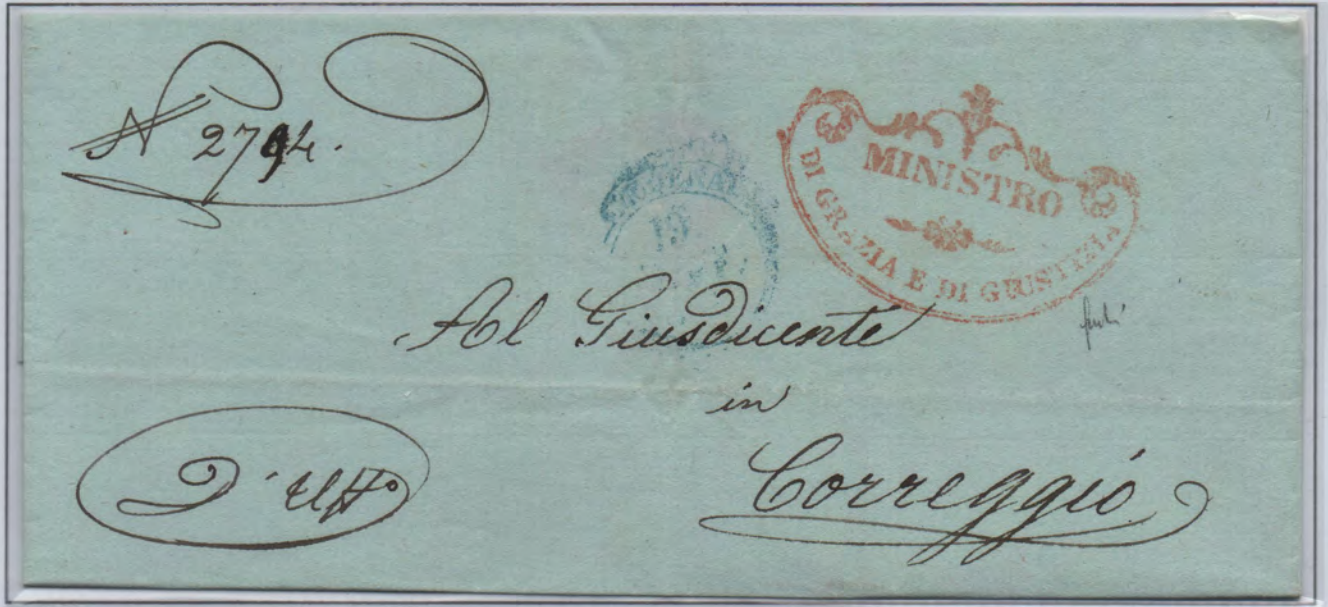 N 2794.
MODENA
19
MINISTRO
DI GRAZIA E DI GIUSTIZIA
Al Giusdicente
in
Correggio
D'Uffo